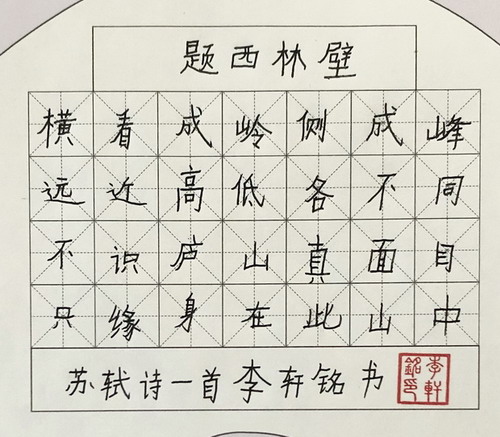 题西林壁
横看成岭侧成峰
远近高低各不同
不识庐山真面目
只缘身在此山中
苏轼诗一首李轩铭书
李軒銘印